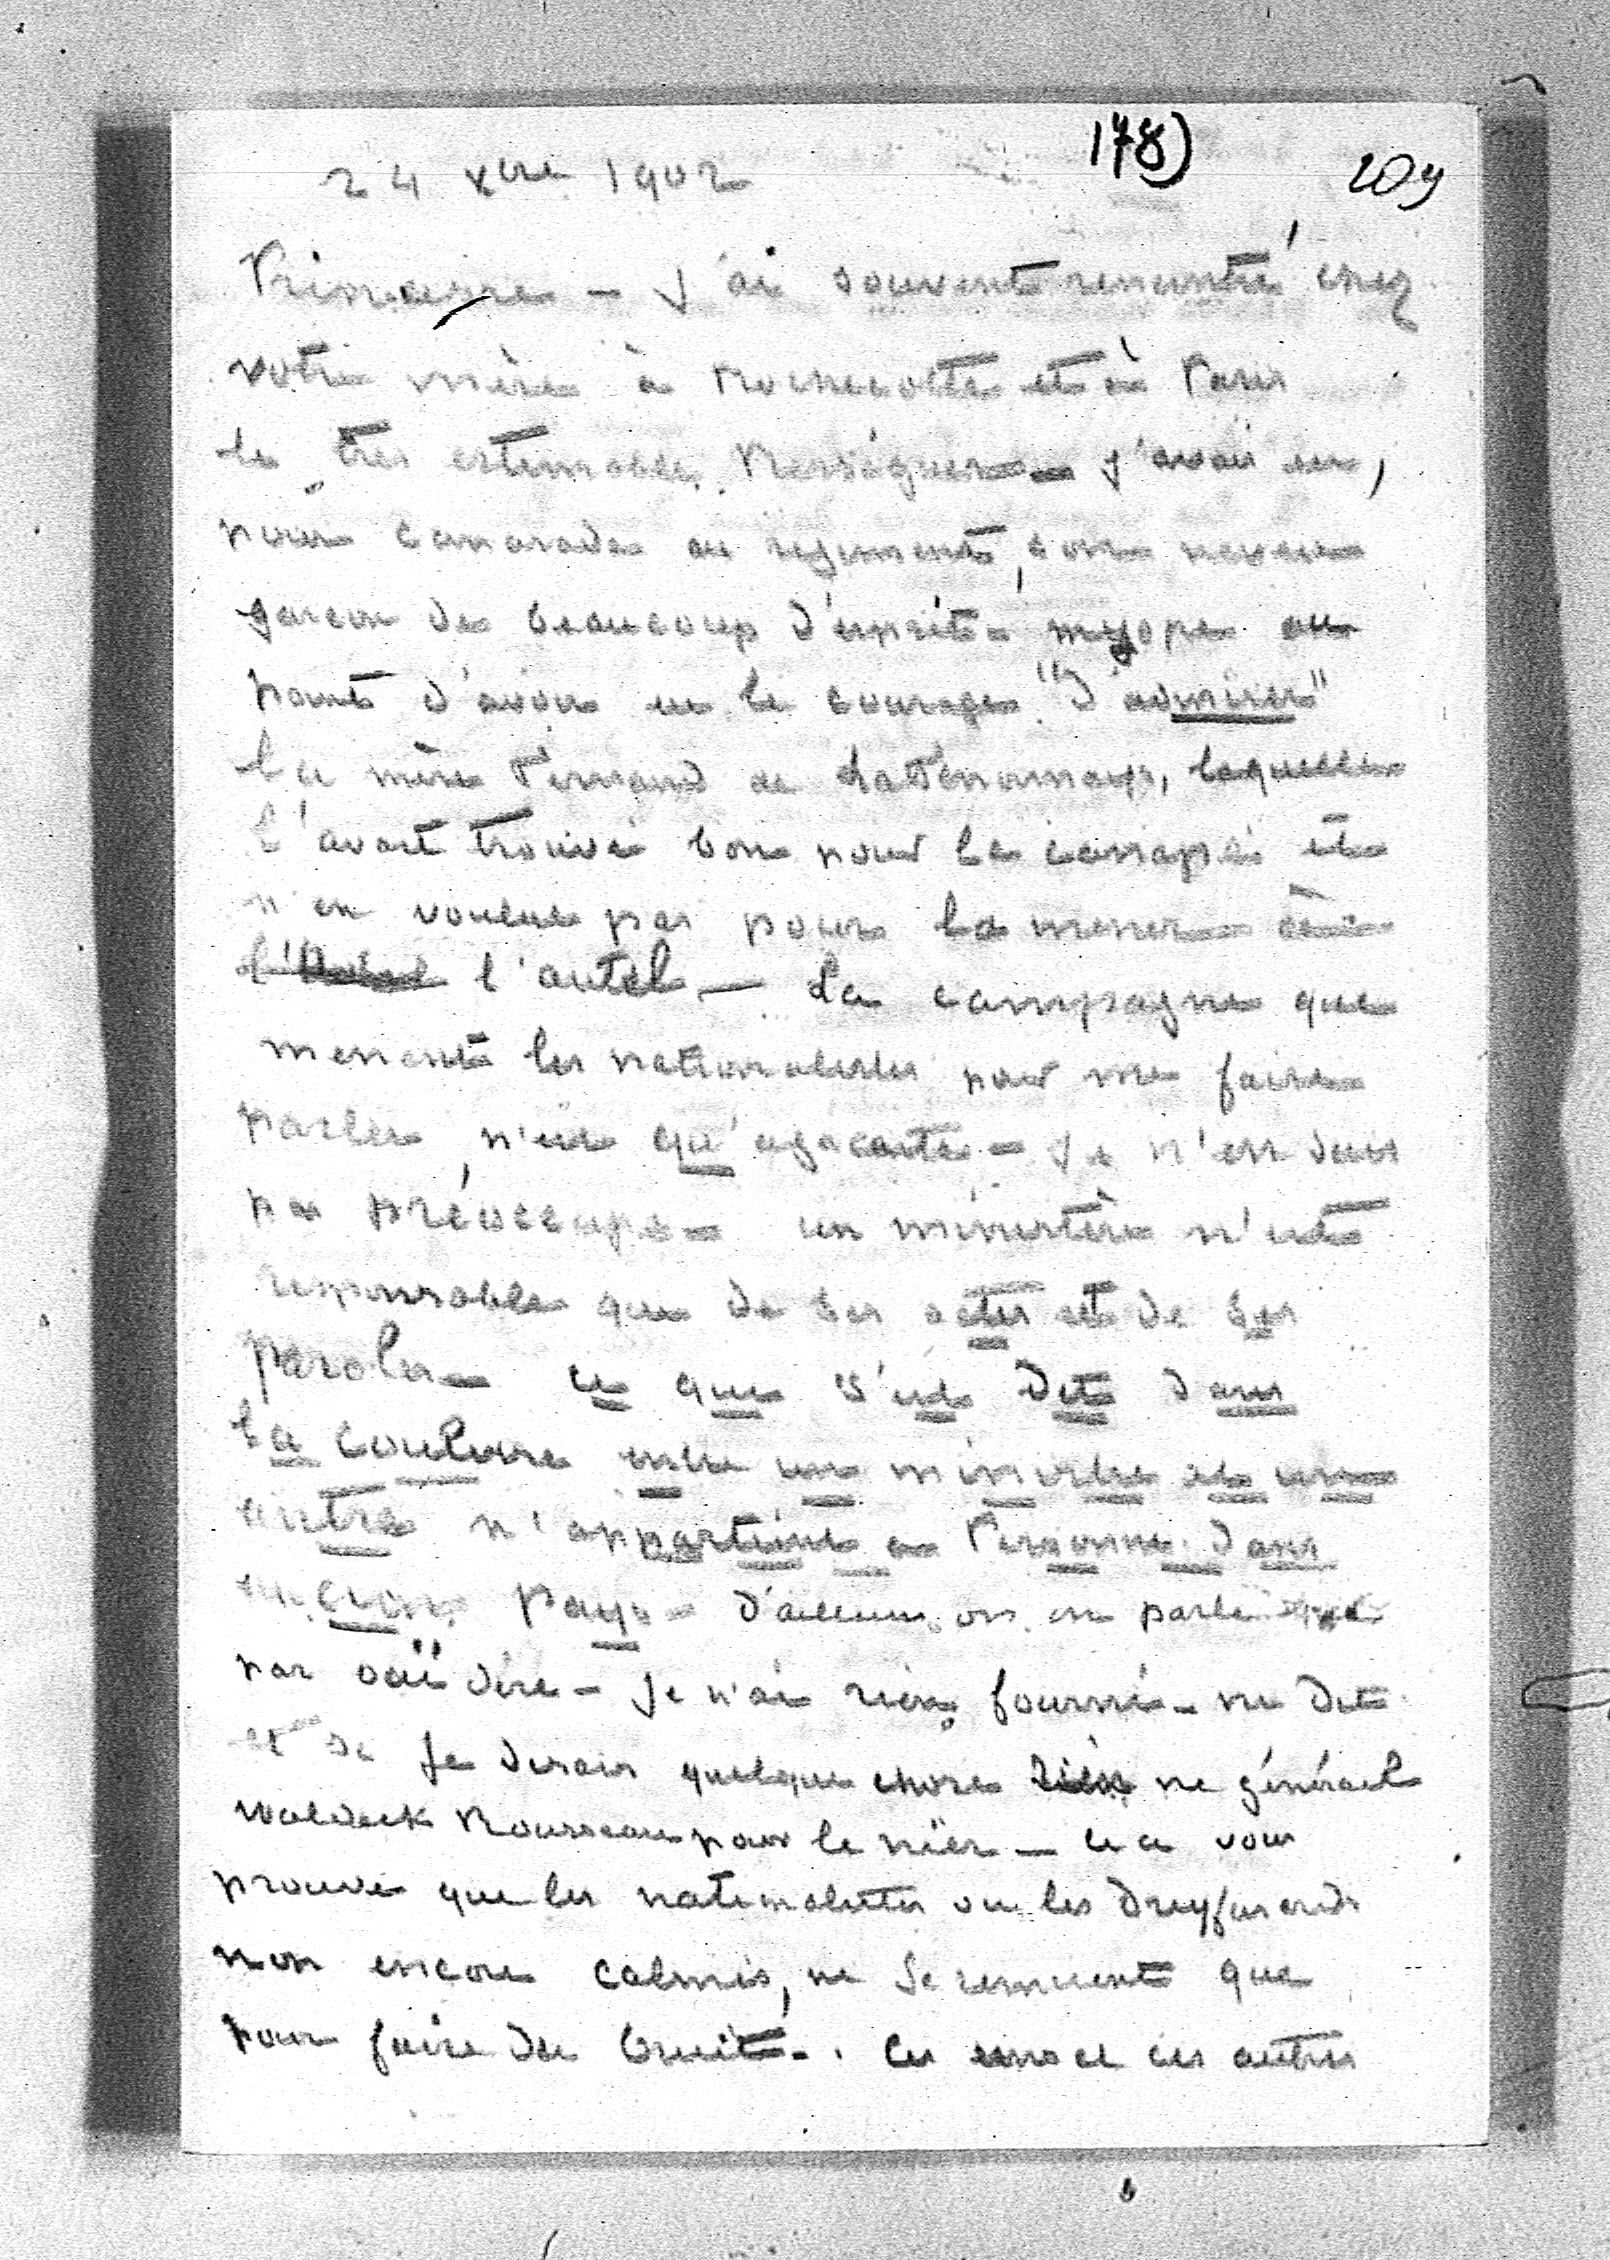 178)
209
24 Xbre 1902
Princesse - J'ai souvent rencontré chez
votre mère à Rochecotte et à Paris
le très estimable - j'avais eu,
pour camarade au régiment, son neveu
garcon de beaucoup d'esprit myope au
point d'avoir eu le courage "d'admirer"
la mère Fernand de laquelle
l'avait trouvé bon pour le canapé et
n'en voulut pas pour la mener à
l'autel - La campagne que
menent les nationalistes pour me faire
parler, n'est qu'agacante - Je n'en suis
pas préoccupé - un ministère n'est
responsable que de ses actes et de ses
paroles - ce que s'est dit dans
la coulisse entre un ministre et un
autre n'appartient a Personne dans
aucun Pays - d'ailleurs on en parle
par ouï dire - Je n'ai rien fourni - ni dit
et si Je disais quelque chose le général
Waldeck Rousseau pour le nier - cela vous
prouve que les nationalistes ou les Dreyfusards
non encore calmés, ne se remuent que
pour faire du bruit - Les uns et les autres